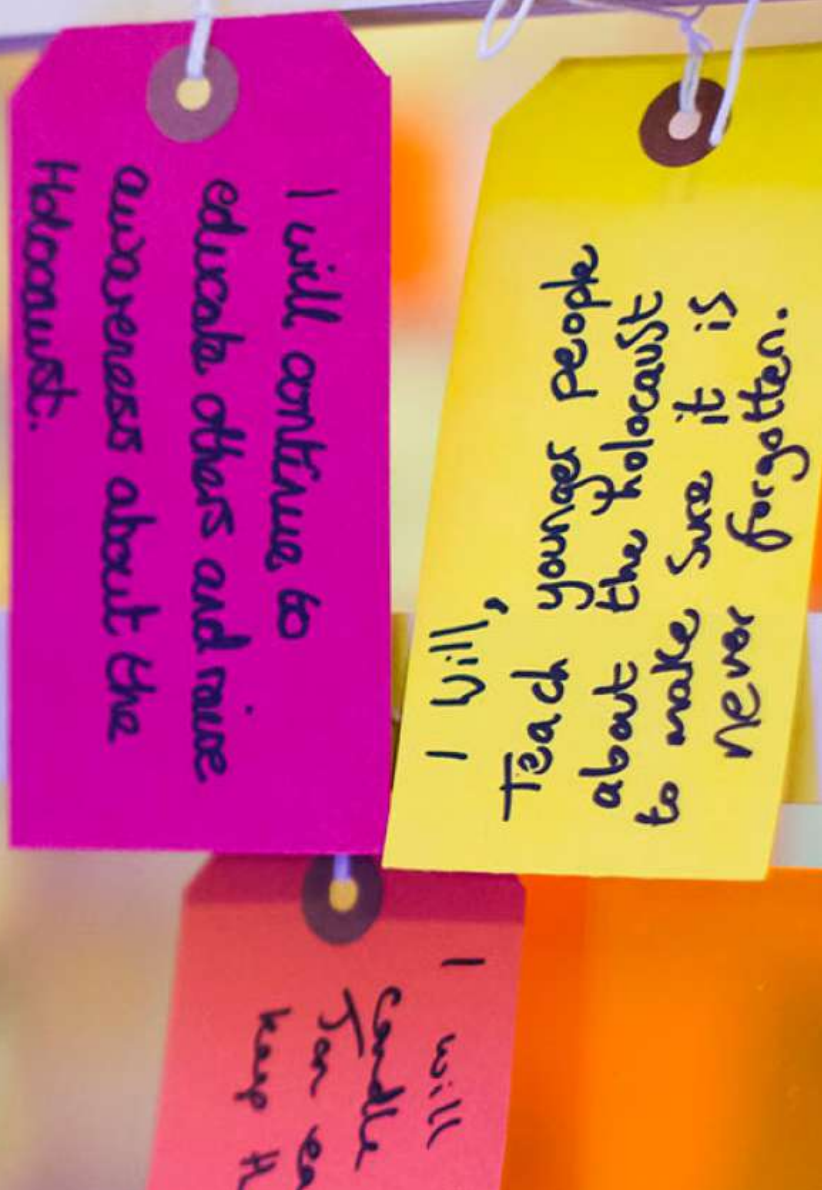 I will continue to
educate others and raise
awareness about the
Holocaust.
I Will,
Teach younger people
about the holocaust
to make sure it is
never forgotten.
I will
candle
Jan
keep